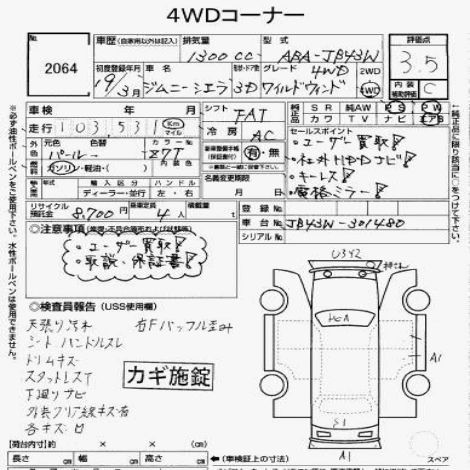 4WDコーナー
2064
車歴 (自家用以外は記入)
排気量
型式
評価点
1300 cc
ABA-JB43W
3.5
初度登録年月
車名
ドア数
グレード
4WD
2WD
4WD
19/3月
ジムニーシエラ
3D
ワイルドウインド
内装
補助評価
C
車検
年
月
シフト
FAT
SR
純AW
カワ
TV
ナビ
走行
103,531
Km
マイル
冷房
AC
セールスポイント
元色
色替
カラーNo.
パール
Z7T
ユーザー買取!
社外HDDナビ!
キーレス!
電格ミラー!
燃料
ガソリン・軽油・( )
車両整備手帳
(保証書付)
有・無
輸入区分
ハンドル
ディーラー・並行
左・右
名義変更期限
月
日
リサイクル預託金
8,700円
乗車定員
4人
積載量
t
登録No.
車台No.
JB43W-301480
シリアルNo.
◎注意事項
ユーザー買取!
取説・保証書!
◎検査員報告 (USS使用欄)
天張り汚れ
右Fバッフル歪み
シート ハンドルスレ
トリムキズ
スタットレスT
下廻りサビ
外装クリア線キズ有
各キズ
カギ施錠
U3Y2
A1
S1
A1
スペア
【荷台内寸】
×
×
長さ
(cm)
幅
(cm)
高さ
(cm)
【車検証上の寸法】
※必ず油性ボールペンをご使用下さい。水性ボールペンは使用できません。